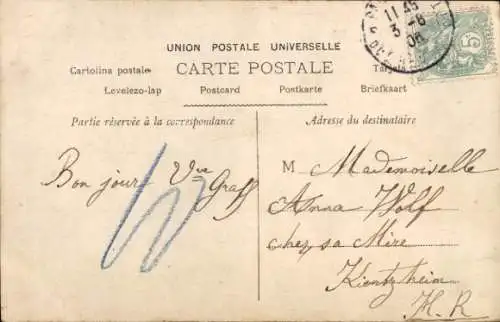 11 45
3-8
06
5
UNION POSTALE UNIVERSELLE
Cartolina postale
CARTE POSTALE
Levelezo-lap
Postcard
Postkarte
Briefkaart
Partie réservée à la correspondance
Adresse du destinataire
Bon jour Vve
Graff
M Mademoiselle
Anna Wolf
chez sa Mère
Kientzheim
H. R